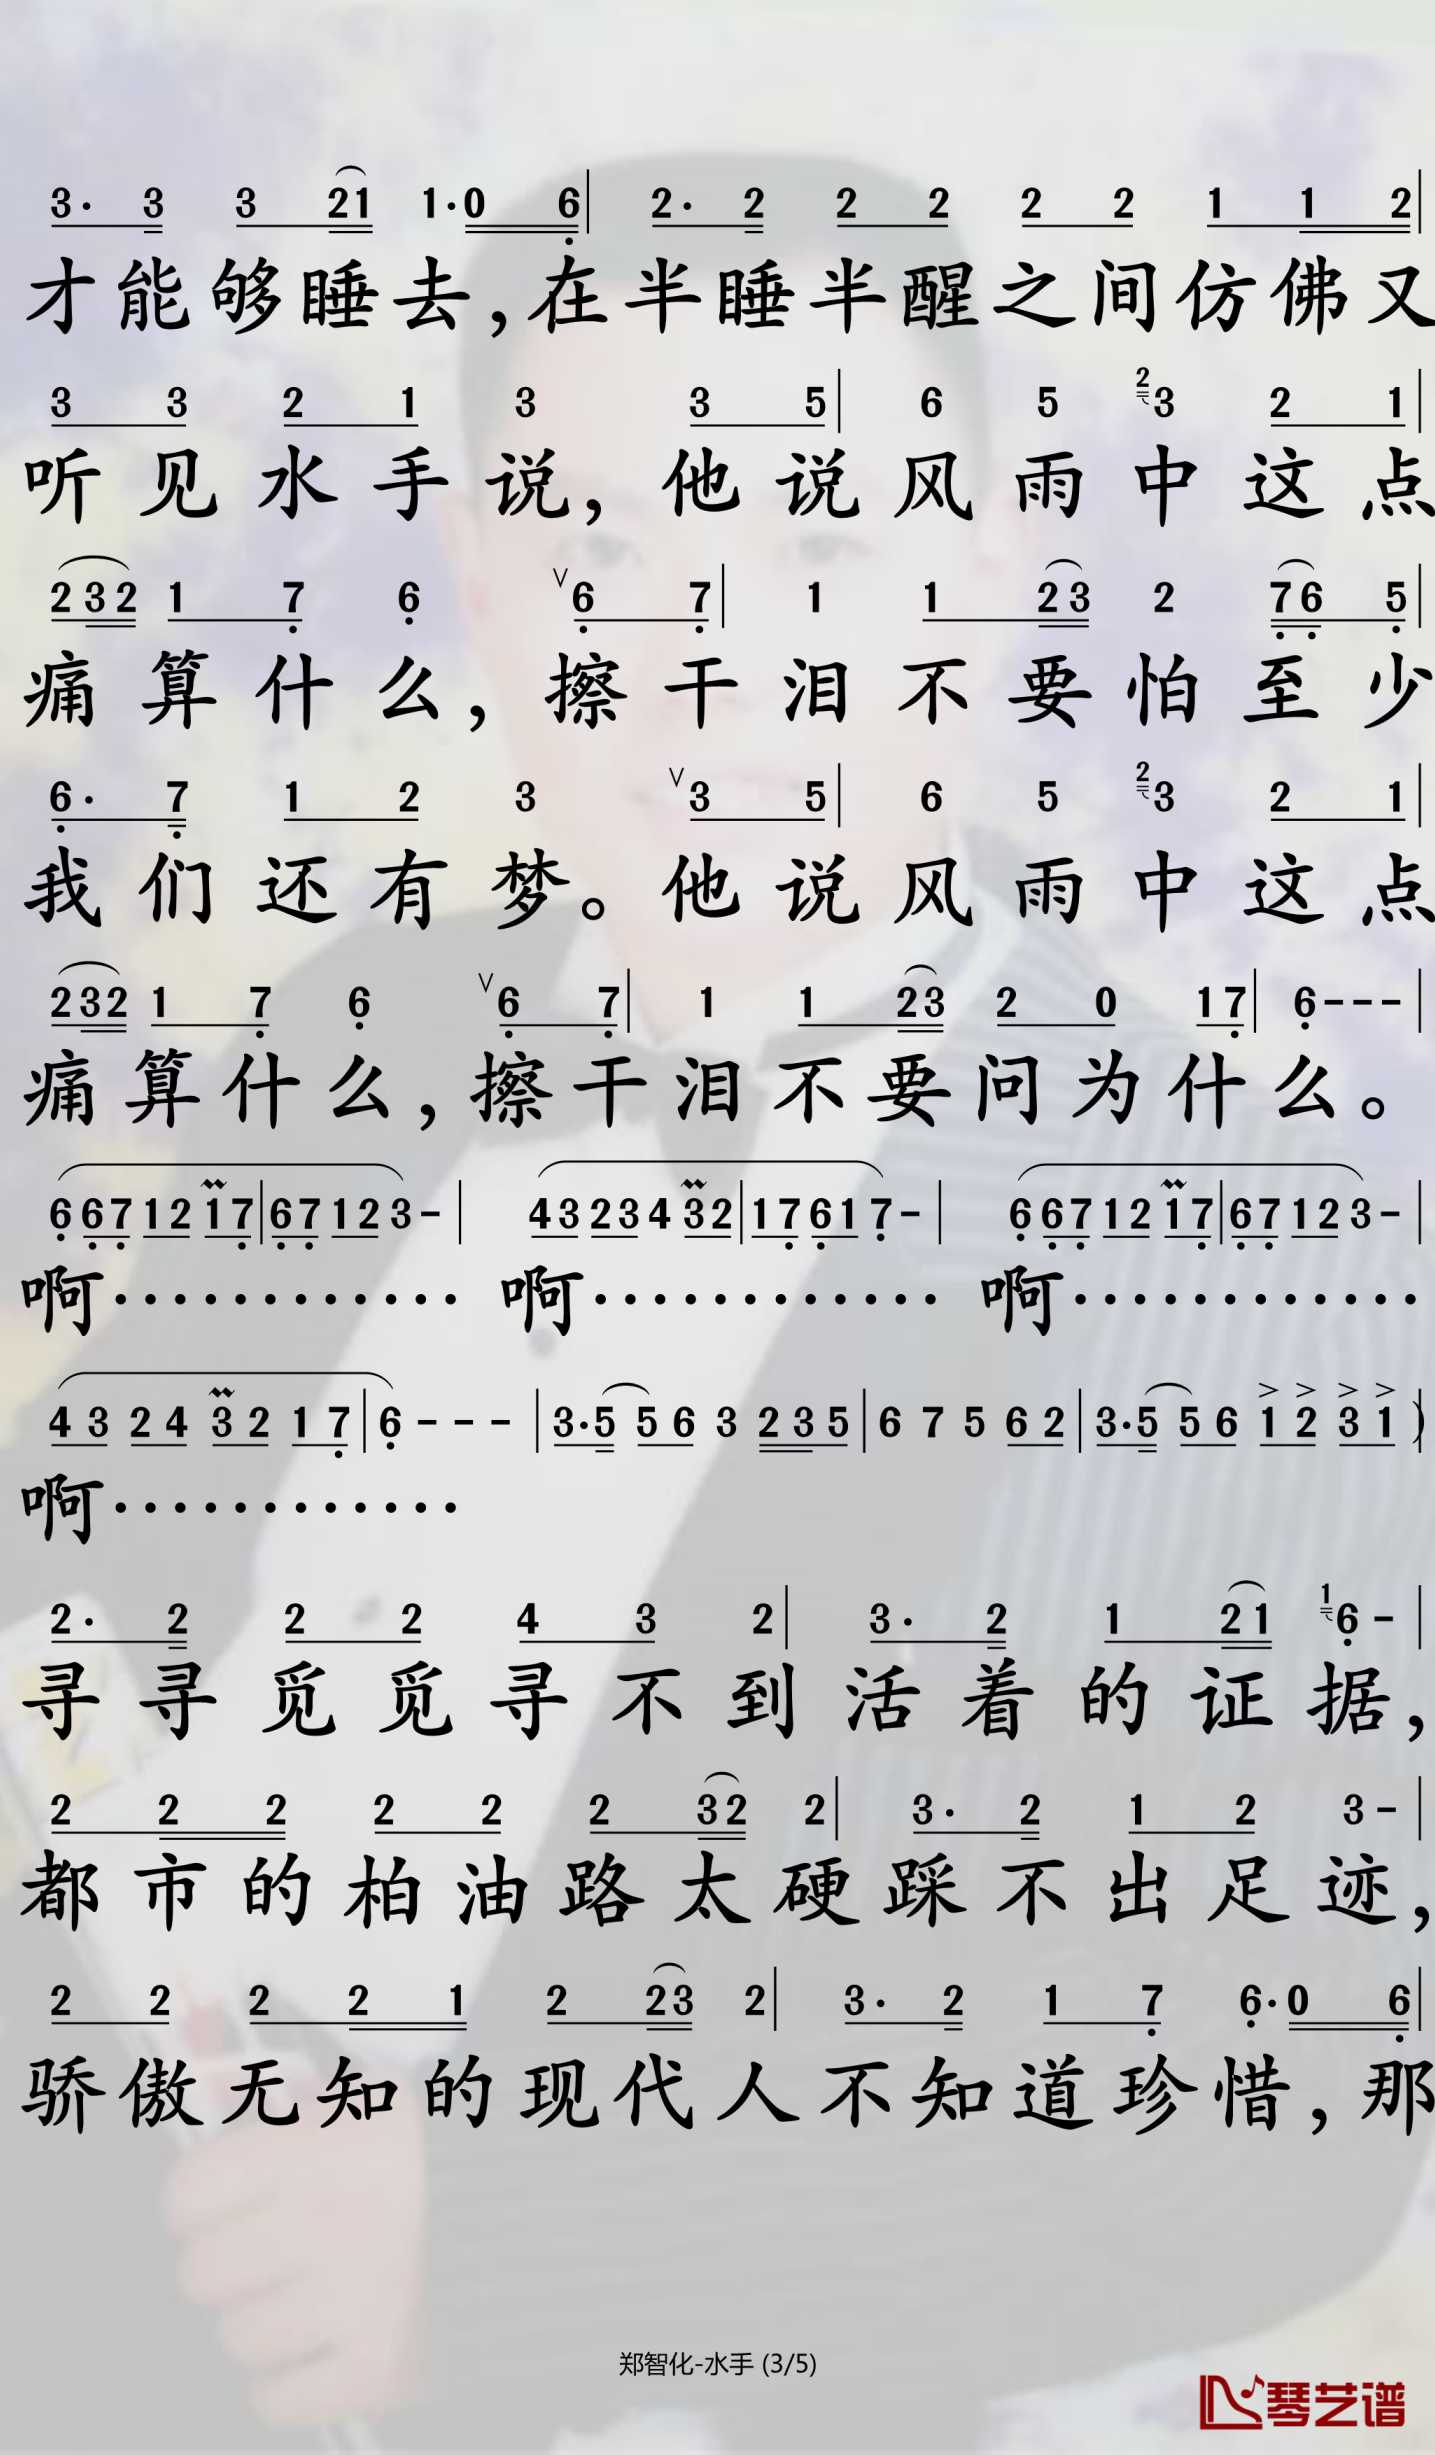 3· 3 3 21 1·0 6 | 2· 2 2 2 2 2 1 1 2 |
才能够睡去,在半睡半醒之间仿佛又
3 3 2 1 3 3 5 | 6 5 2 3 2 1 |
听见水手说,他说风雨中这点
2 3 2 1 7 6 V 6 7 | 1 1 2 3 2 7 6 5 |
痛算什么,擦干泪不要怕至少
6· 7 1 2 3 V 3 5 | 6 5 2 3 2 1 |
我们还有梦。他说风雨中这点
2 3 2 1 7 6 V 6 7 | 1 1 2 3 2 0 1 7 | 6 - - - |
痛算什么,擦干泪不要问为什么。
6 6 7 1 2 1 7 | 6 7 1 2 3 - | 4 3 2 3 4 3 2 | 1 7 6 1 7 - | 6 6 7 1 2 1 7 | 6 7 1 2 3 - |
啊············ 啊············ 啊············
4 3 2 4 3 2 1 7 | 6 - - - | 3·5 5 6 3 2 3 5 | 6 7 5 6 2 | 3·5 5 6 > 1 > 2 > 3 > 1 | )
啊············
2· 2 2 2 4 3 2 | 3· 2 1 2 1 1 6 - |
寻寻觅觅寻不到活着的证据,
2 2 2 2 2 2 3 2 2 | 3· 2 1 2 3 - |
都市的柏油路太硬踩不出足迹,
2 2 2 2 1 2 2 3 2 | 3· 2 1 7 6·0 6 |
骄傲无知的现代人不知道珍惜,那
郑智化-水手 (3/5)
琴艺谱